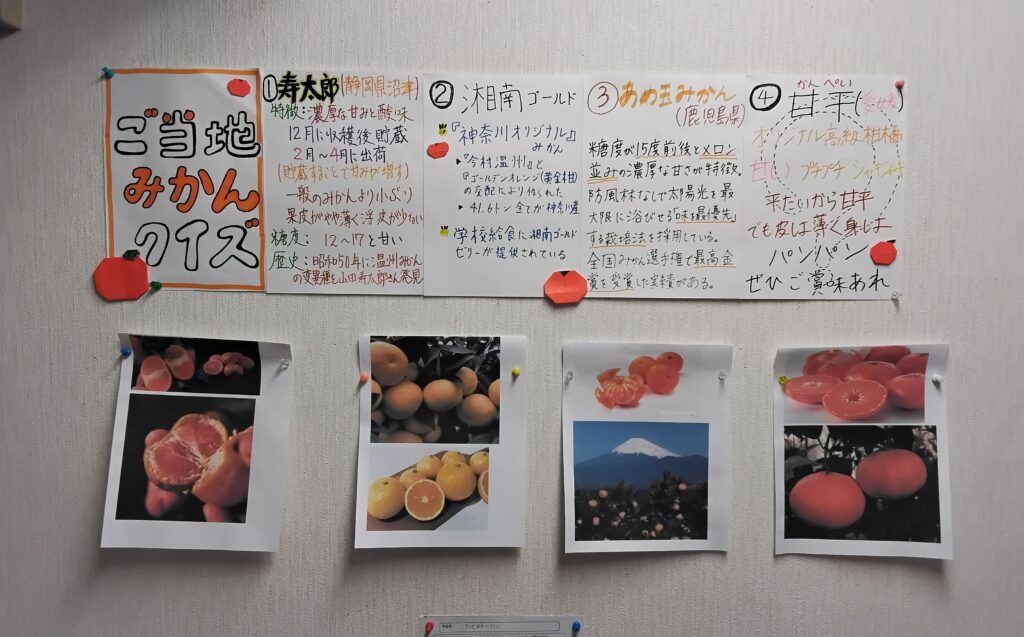 ご当地
みかん
クイズ
①寿太郎(静岡県沼津)
特徴:濃厚な甘みと酸味
12月に収穫後貯蔵
2月〜4月に出荷
(貯蔵することで甘みが増す)
一般のみかんより小ぶり
果皮がやや薄く浮皮がりない
糖度: 12〜17と甘い
歴史:昭和50年に温州みかん
の変異種を山田寿太郎さん発見
②湘南ゴールド
『神奈川オリジナル』
みかん
▶『今村温州』と
『ゴールデンオレンジ(黄金柑)
の交配により作られた
▶41.6トン全てが神奈川産
学校給食に湘南ゴールド
ゼリーが提供されている
③あめ玉みかん
(鹿児島県)
糖度が15度前後とメロン
並みの濃厚な甘さが特徴。
防風林なしで太陽光を最
大限に浴びせる「味を最優先」
する栽培法を採用している。
全国みかん選手権で最高金
賞を受賞した実績がある。
かんぺい
④甘平(愛媛)
オリジナル高級柑橘
甘い プチプチ シャキシャキ
平たいから甘平
でも皮は薄く身は
パンパン
ぜひご賞味あれ